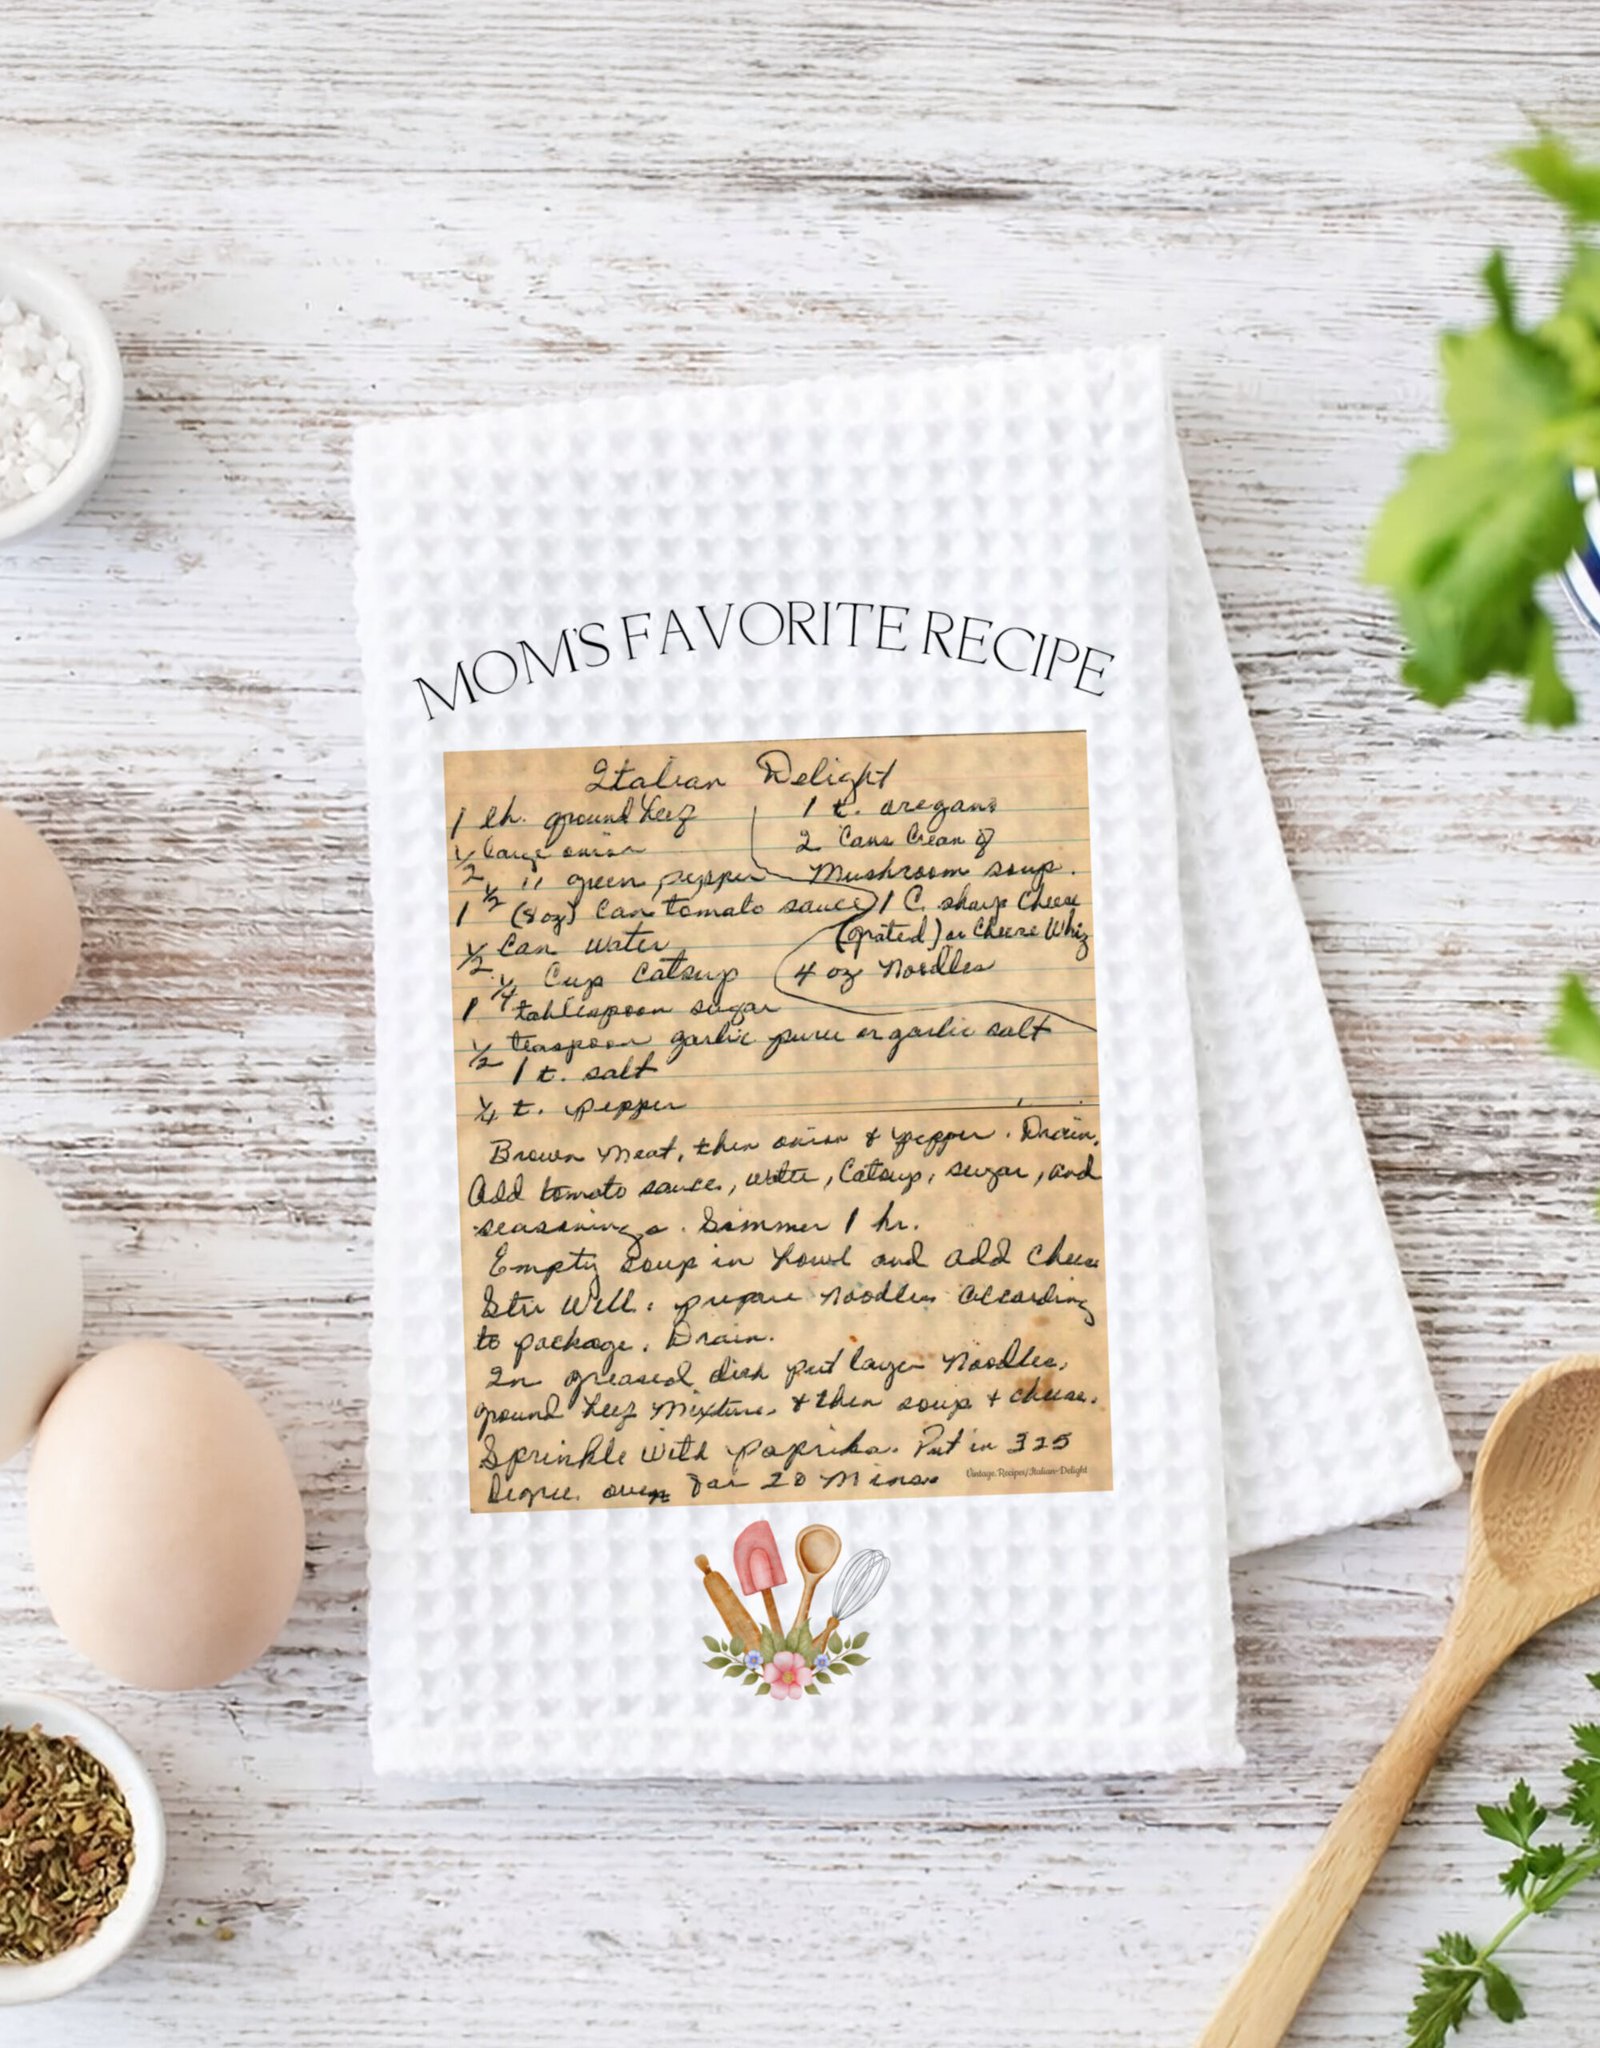 MOM'S FAVORITE RECIPE
Italian Delight
1 lb. ground beef
1/2 large onion
1/2 " green pepper
1 (8 oz) can tomato sauce
1/2 Can water
1/4 Cup Catsup
1 tablespoon sugar
1/2 teaspoon garlic puree or garlic salt
1 t. salt
1/4 t. pepper
1 t. oregano
2 Cans Cream of
Mushroom soup.
1 C. sharp Cheese
(grated) or Cheese Whiz
4 oz Noodles
Brown Meat, then onion & pepper. Drain.
Add tomato sauce, water, Catsup, sugar, and
seasonings. Simmer 1 hr.
Empty soup in bowl and add cheese
Stir Well. prepare Noodles according
to package. Drain.
In greased dish put layer Noodles,
ground beef Mixture, & then soup + cheese.
Sprinkle with paprika. Put in 325
Degree oven for 20 Mins.
Vintage.Recipes/Italian-Delight